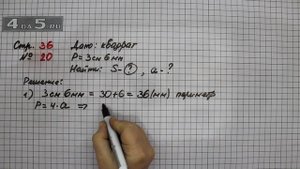 4DA5.RU
Стр. 36 Дано: квадрат
№ 20 P = 3см 6мм
Найти: S-?, a-?
Решение:
1) 3см 6мм = 30+6 = 36 (мм) периметр
P = 4·a ⇒